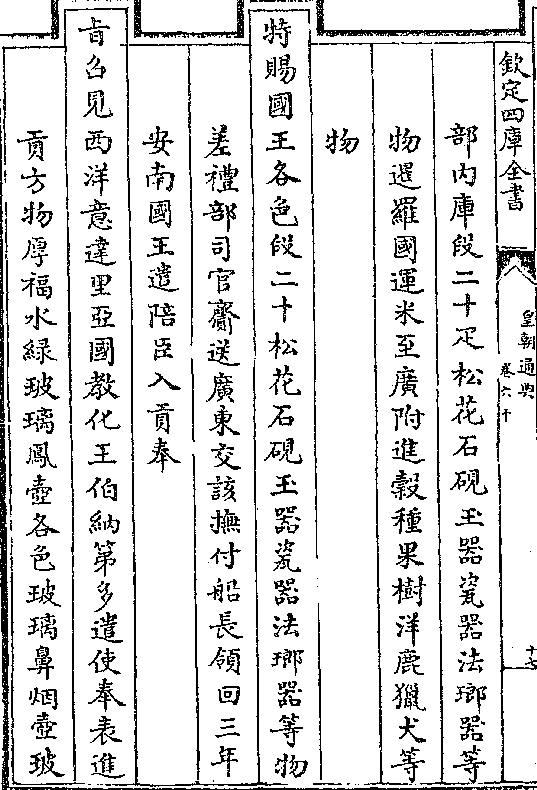 欽定四庫全書
皇朝通典
卷六十
十七
部内庫段二十疋松花石硯玉器瓷器法瑯器等
物暹羅國運米至廣附進穀種果樹洋鹿獵犬等
物
特賜國王各色段二十松花石硯玉器瓷器法瑯器等物
差禮部司官齎送廣東交該撫付船長領回三年
安南國王遣陪臣入貢奉
旨召見西洋意達里亞國教化王伯納第多遣使奉表進
貢方物厚福水綠玻璃鳳壺各色玻璃鼻烟壺玻